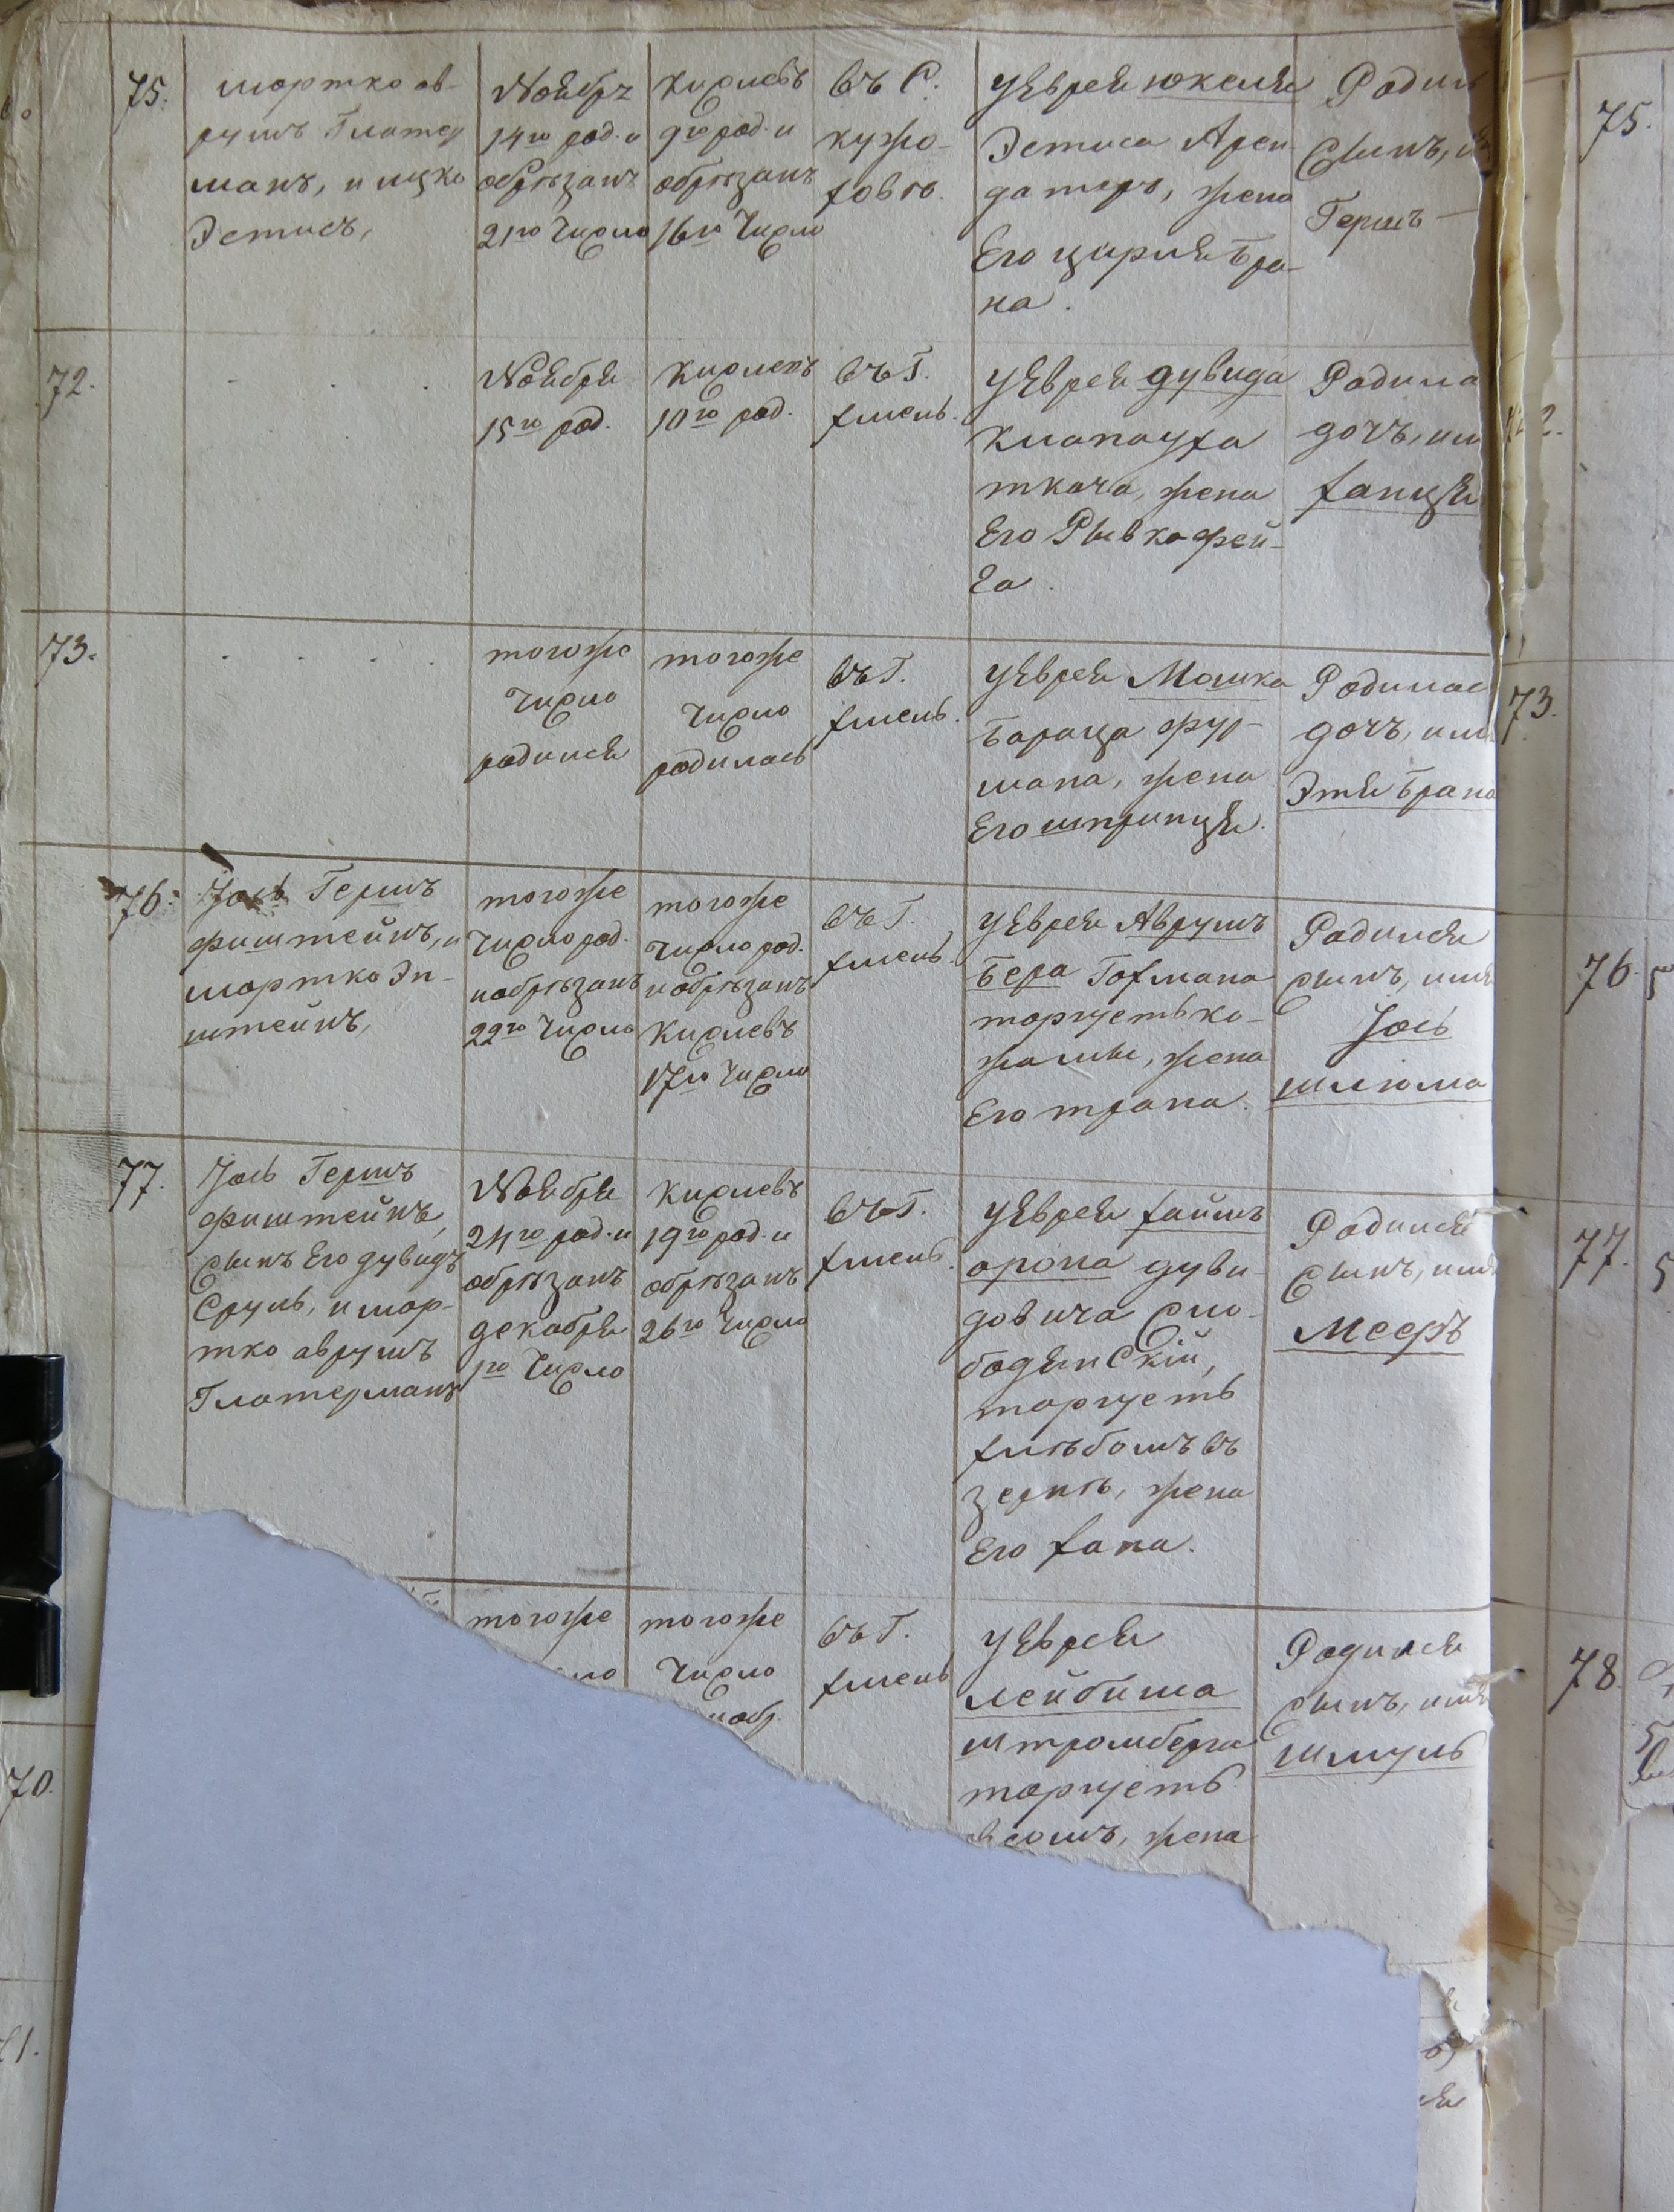 75.
мортко ав-
румъ Глатер
манъ, и ицко
Эстисъ,
Ноября
14го род. и
обрѣзанъ
21го Число
Кислевъ
9го род. и
обрѣзанъ
16го Число
въ С.
кужо-
ховѣ.
у Еврея юкеля
Эстиса Арен
датеръ, жена
Его цирля бра-
на.
Родил
Сынъ,
Гершъ
72.
Ноября
15го род.
Кислевъ
10го род.
въ Г.
хмель.
у Еврея дувида
Клапауха
ткача, жена
Его Рывка фей-
га.
Родила
дочъ, им
ханця
73.
тогоже
Число
родился
тогоже
Число
родилась
въ Г.
хмель.
у Еврея Мошка
бараца фур-
мана, жена
Его шпринця.
Родилас
дочъ, имя
Этя брана
76.
Іось Гершъ
фиштейнъ, и
мортко Эп-
штейнъ,
тогоже
Число род.
и обрѣзанъ
22го Число
тогоже
Число род.
и обрѣзанъ
Кислевъ
17го Число
въ Г.
хмель.
у Еврея Аврумъ
бера Гофмана
торгуетъ ко-
жамы, жена
Его трана.
Родился
сынъ, имя
Іось
шлюма
77.
Іось Гершъ
фиштейнъ,
сынъ Его дувидъ
Сруль, и мор-
тко аврумъ
Глатерманъ
Ноября
24го род. и
обрѣзанъ
декабря
1го Число
Кислевъ
19го род. и
обрѣзанъ
26го Число
въ Г.
хмель.
у Еврея хаимъ
арона дуви-
довича сло-
бодянскій,
торгуетъ
хлѣбомъ въ
зернѣ, жена
Его хана.
Родился
Сынъ, имя
Мееръ
тогоже
тогоже
Число
иобр.
въ Г.
хмель
у Еврея
лейбиша
штромберга
торгуетъ
жена
Родился
сынъ, имя
шмуль
70.
75.
73.
76.
77.
78.